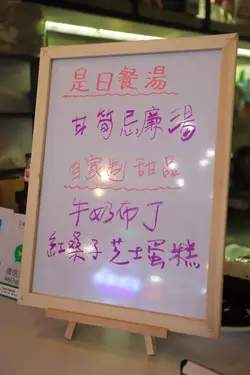 是日餐湯
甘筍忌廉湯
自家制甜品
牛奶布丁
紅桑子芝士蛋糕